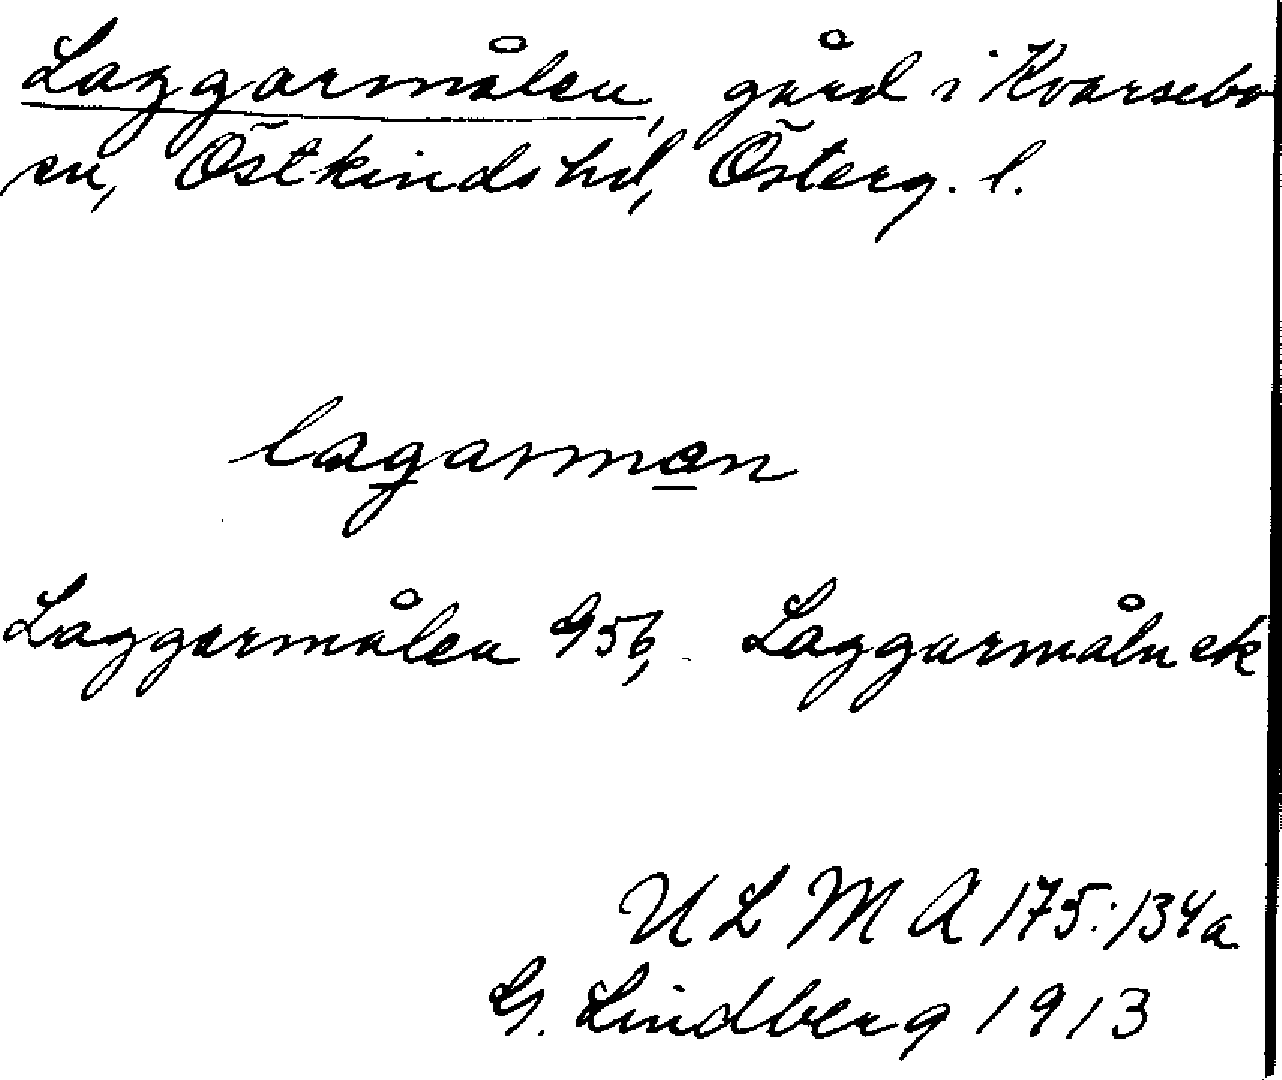 Laggarmålen, gård i Kvarsebo
sn, Östkinds hd, Österg. l.
lagarmon
Laggarmålen G56, Laggarmåln ek
ULMA 175:134a
G. Lindberg 1913